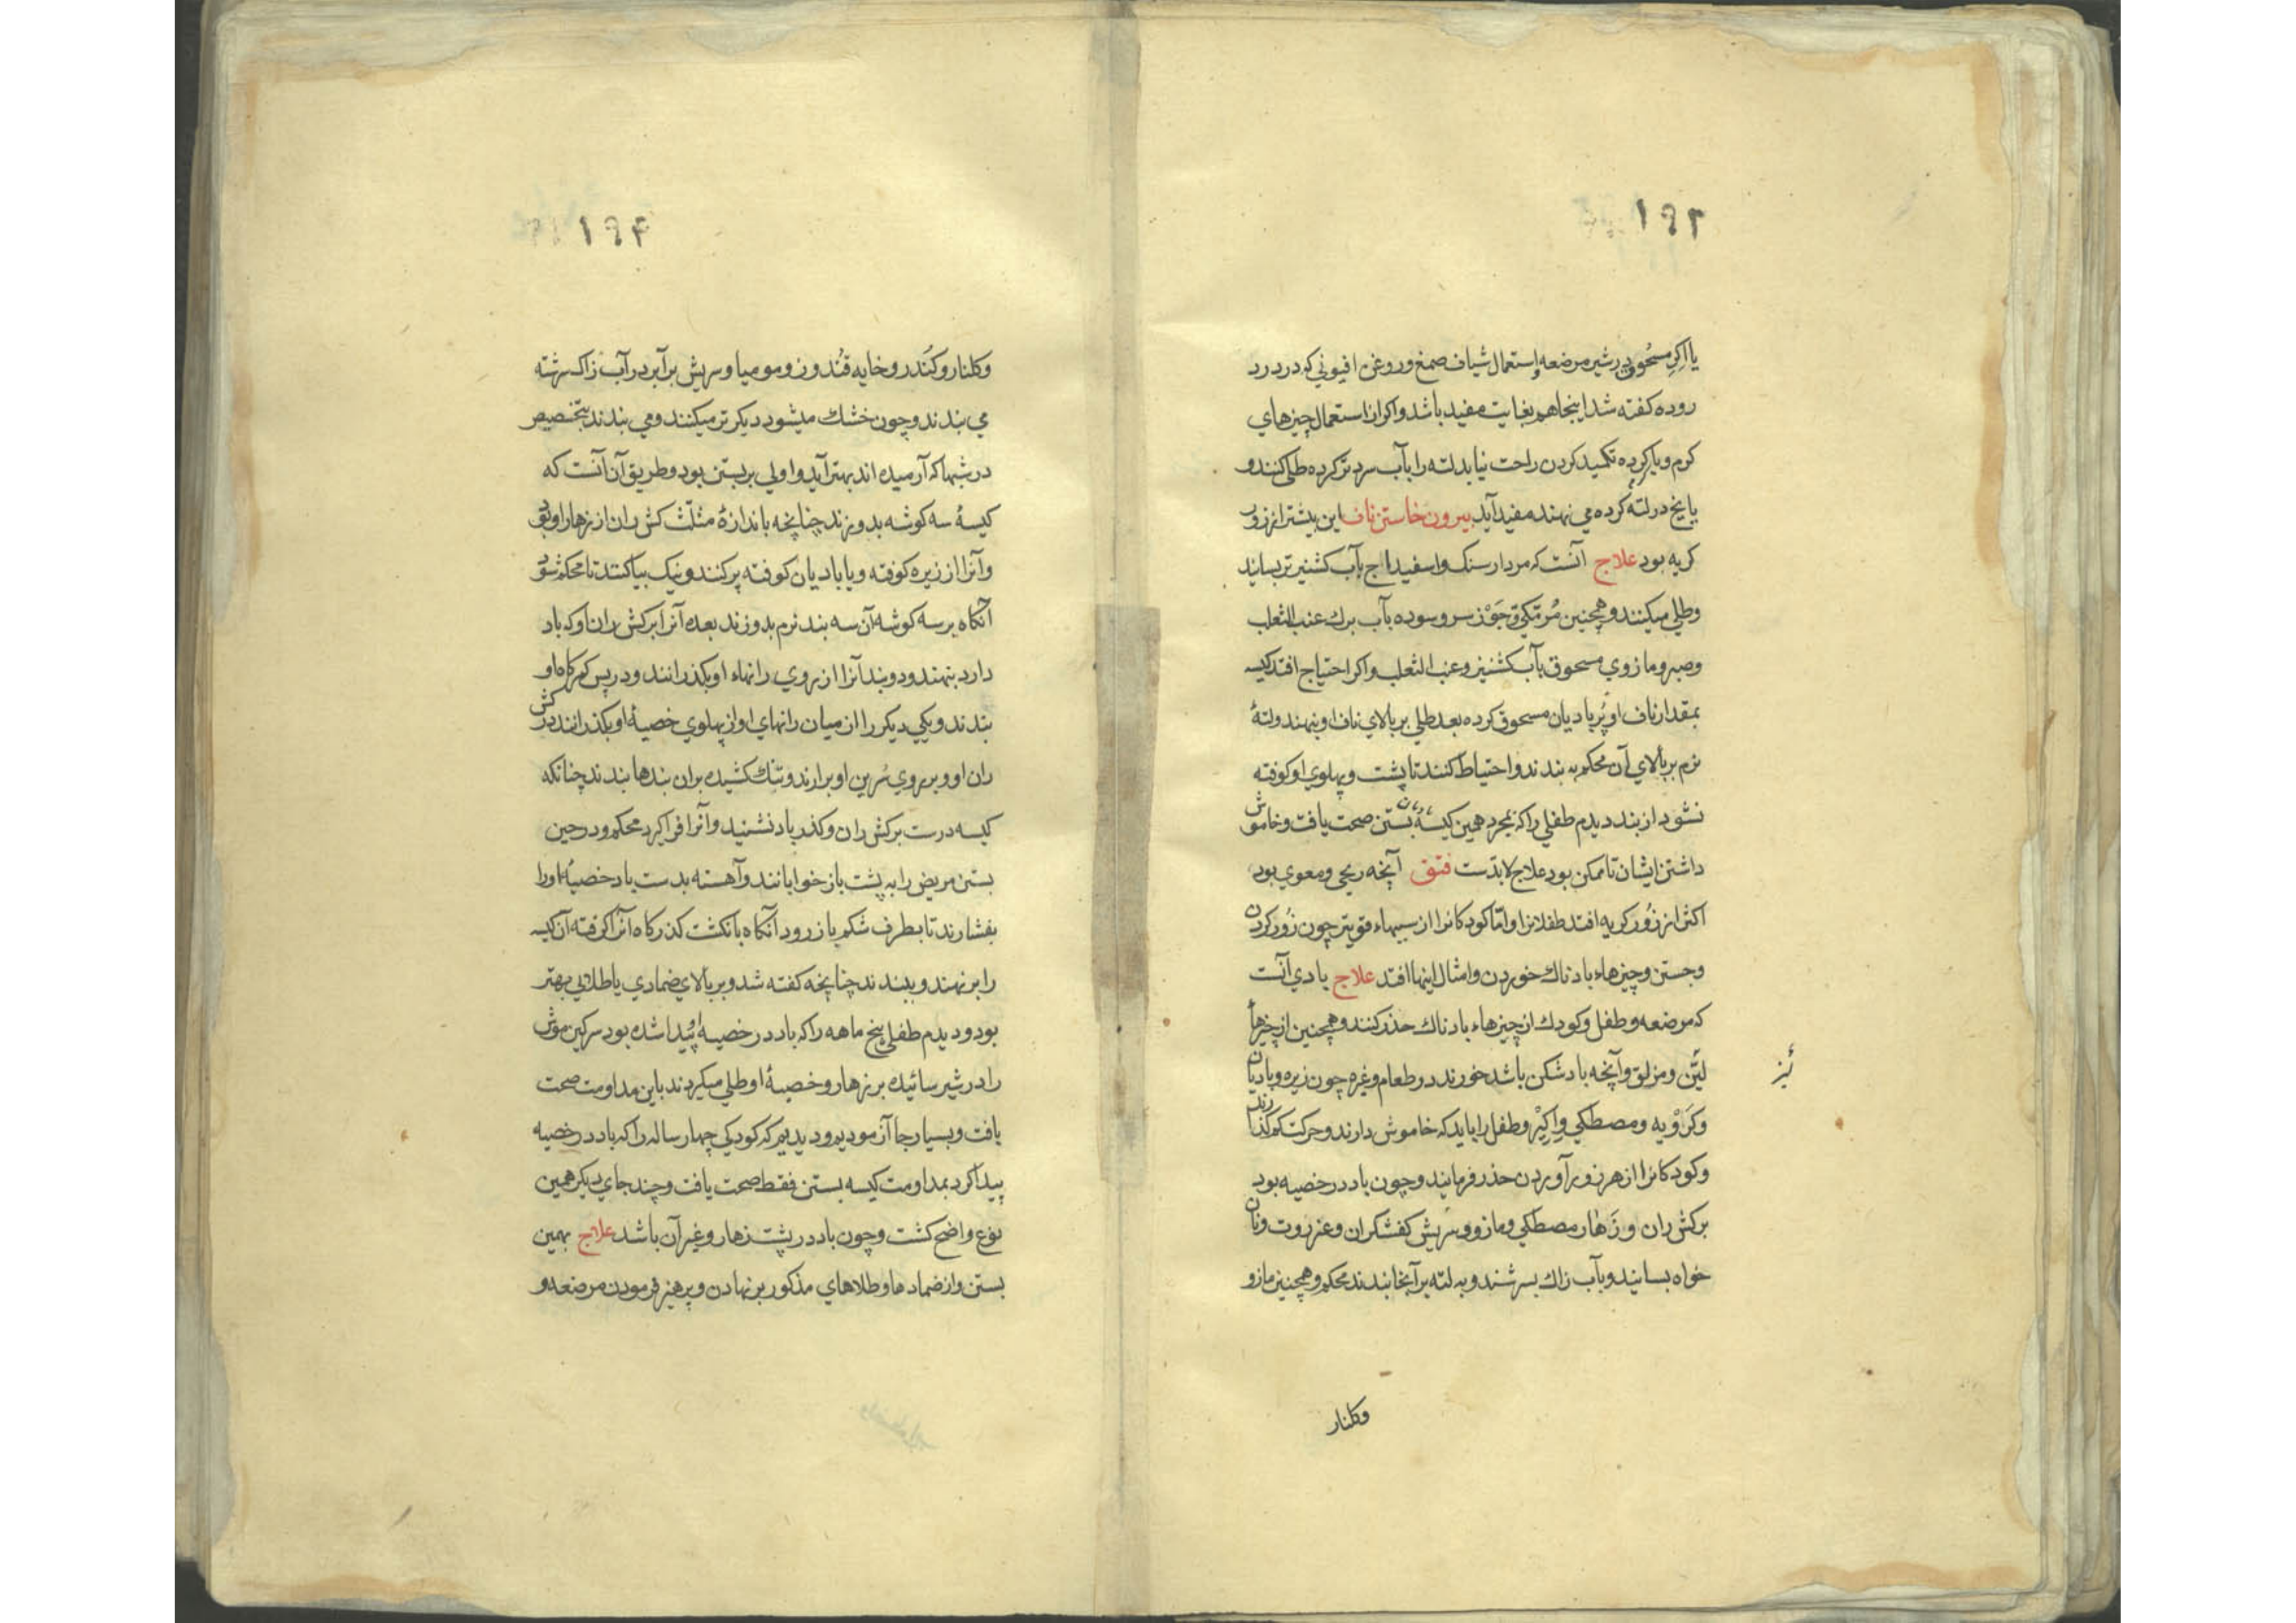 ۱۹۳
یا اکرِ مسحوق در شیر مرضعه و استعمال شیاف صمغ و روغن افیونی که در درد
روده کفته شد اینجا هم بغایت مفید باشد و اکر از استعمال چیزهای
کرم و یا کرده تکمید کردن راحت نیابد لته را بآب سرد تر کرده طلی کنند و
یا یخ در لته کرده می نهند مفید آید بیرون خاستن ناف این بیشتر از زور
کریه بود علاج آنست که مردار سنک و اسفیداج بآب کشنیز تر بسایند
و طلی میکنند و همچنین مُر مکّی و جَوْز سرو سوده بآب برك عنب الثعلب
و صبر و مازوی مسحوق بآب کشنیز و عنب الثعلب و اکر احتیاج افتد کیسه
بمقدار ناف او پُر بادیان مسحوق کرده بعد طلی بر بالای ناف او بنهند و لتهٔ
نرم بر بالای آن محکم به بندند و احتیاط کنند تا پشت و پهلوی او کوفته
نشود از بند دیدم طفلی را که بمجرد همین کیسهٔ بستن صحت یافت و خاموش
داشتن ایشان تا ممکن بود علاج لابدّست فتق آنچه ریحی و معوی بود
اکثر از زُور کریه افتد طفلانرا و امّا کودکانرا از سببهاء قوی‌تر چون زُور کردن
و جستن و چیزهاء بادناك خوردن و امثال اینها افتد علاج بادی آنست
که مرضعه و طفل و کودك از چیزهاء بادناك حذر کنند و همچنین از چیزهاء
لیّن و مزلق و آنچه باد شکن باشد خورند در طعام و غیره چون زیره و بادیان
نیز
و کَرَوْیه و مصطکی و اکِیْر و طفل را باید که خاموش دارند و حرکت کم کنند
و کودکانرا از هر زور آوردن حذر فرمایند و چون باد در خصیه بود
بر کش ران و زَهار مصطکی و مازو و سَریش کفشکران و عنزروت و نان
خواه بسایند و بآب زاك بسرشند و به لته بر آنجا بندند محکم و همچنین مازو
وکلنار
۱۹۴
وکلنار و کُندر و خایه قُندوز و مومیا و سریش برآبر در آب زاك سرشته
می بندند و چون خشك میشود دیکر تر میکنند و می بندند بتخصیص
در شبها که آرمیده اند بهتر آید و اولی بر بستن بود و طریق آن آنست که
کیسهٔ سه کوشه بدوزند چنانچه باندازهٔ مثلّث کش ران از زهار او بود
و آنرا از زیره کوفته و یا بادیان کوفته پر کنند و نیک بیاکنند تا محکم شود
آنکاه بر سه کوشه آن سه بند نرم بدوزند بعده آنرا بر کش ران او که باد
دارد بنهند و دو بند آنرا از روی رانهاء او بکذرانند و در پس کمرکاه او
بندند و یکی دیکر را از میان رانهای او از پهلوی خصیهٔ او بکذرانند در کش
ران او و بر روی سُرین او برارند و تنك کشیده بران بندها بندند چنانکه
کیسه درست بر کش ران و کذر باد نشیند و آنرا فرا کیرد محکم و در حین
بستن مریض را به پشت باز خوابانند و آهسته بدست باد خصیهٔ او را
بفشارند تا بطرف شکم باز رود آنکاه بانکشت کذرکاه آنرا کرفته آن کیسه
را بر نهند و ببندند چنانچه کفته شد و بر بالای ضمادی یا طلائی بهتر
بود و دیدم طفلی پنج ماهه را که باد در خصیه او پیدا شده بود سرکین موش
را در شیر سائیده بر زهار و خصیهٔ او طلی میکردند باین مداومت صحت
یافت و بسیار جا آزمودیم و دیدیم که کودکی چهار ساله را که باد در خصیه
پیدا کرد بمداومت کیسه بستن فقط صحت یافت و چند جای دیکر همین
نوع واضح کشت و چون باد در پشت زهار و غیر آن باشد علاج بهمین
بستن و از ضمادها و طلاهای مذکور بر نهادن و پرهیز فرمودن مرضعه و